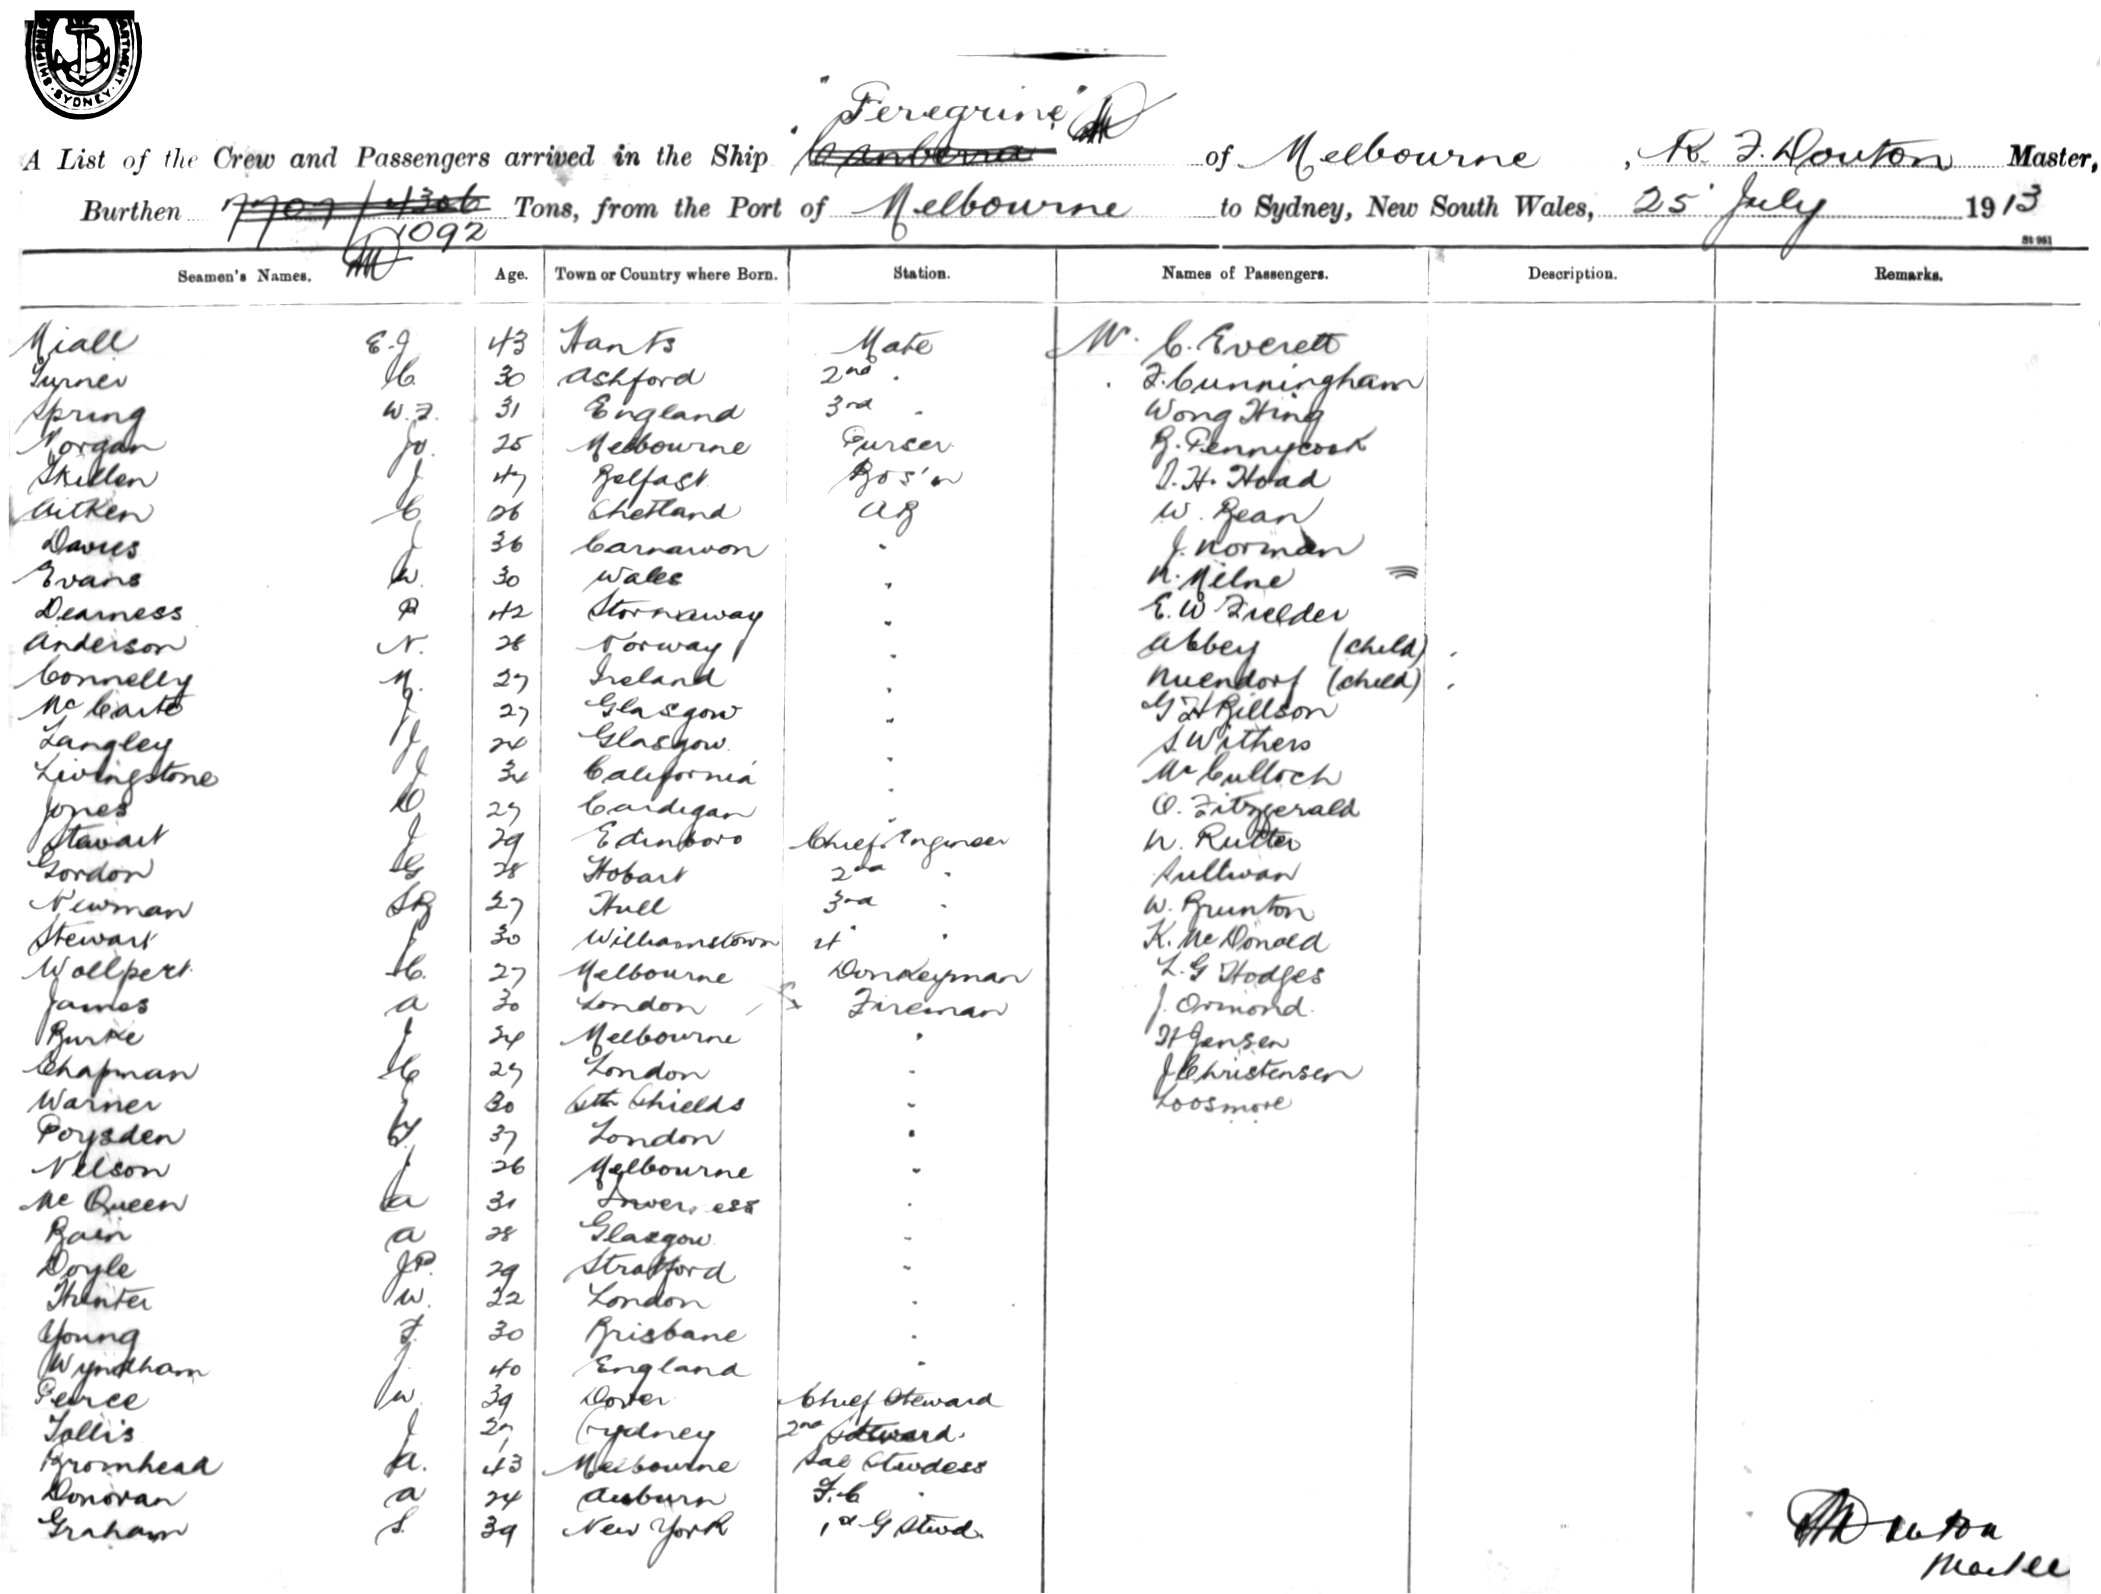 SHIPPING DEPARTMENT SYDNEY
"Peregrine"
A List of the Crew and Passengers arrived in the Ship Canberra of Melbourne, R. F. Douton Master,
Burthen 7707 / 4306 Tons, from the Port of Melbourne to Sydney, New South Wales, 25 July 1913
1092
St 961
Seamen's Names. Age. Town or Country where Born. Station. Names of Passengers. Description. Remarks.
Miall E.J 43 Hants Mate Mr. C. Everett
Turner C. 30 Ashford 2nd " " F. Cunningham
Spring W.F. 31 England 3rd " Wong Hing
Morgan Jo. 25 Melbourne Purser B. Pennycook
Skillen J 47 Belfast Bos'n J. H. Hoad
Aitken C 26 Shetland AB W. Bean
Davies J 36 Carnarvon " J. Norman
Evans W. 30 Wales " N. Milne
Dearness P 42 Stornaway " E. W Fielder
Anderson N. 28 Norway " Abbey (child)
Connelly M. 27 Ireland " Nuendorf (child)
McCarte J 27 Glasgow " G H Billson
Langley J 24 Glasgow " S. Withers
Livingstone J 34 California " McCulloch
Jones D 27 Cardigan " O. Fitzgerald
Stewart J 29 Edinboro Chief Engineer N. Rutter
Gordon G 28 Hobart 2nd " Sullivan
Newman SB 27 Hull 3rd " W. Brunton
Stewart J 30 Williamstown 4 " K. McDonald
Wollpert C. 27 Melbourne Donkeyman L. G Hodges
James A 30 London Fireman J. Ormond.
Burke J 24 Melbourne " H Jensen
Chapman C 27 London " J Christensen
Warner J 30 Sth Shields " Loosmore
Poysden T. 37 London "
Nelson J 26 Melbourne "
McQueen A 31 Inverness "
Bain A 28 Glasgow "
Doyle J.P. 29 Stratford "
Hunter W. 22 London "
Young F. 30 Brisbane "
Wyndham J. 40 England "
Peirce W. 39 Dover Chief Steward
Tollis J 27 Sydney 2nd Steward.
Bromhead A. 43 Melbourne Sal Stwdess
Donovan A 24 Auburn F. C "
Graham S. 39 New York 1st G Stwd.
Douton
Master